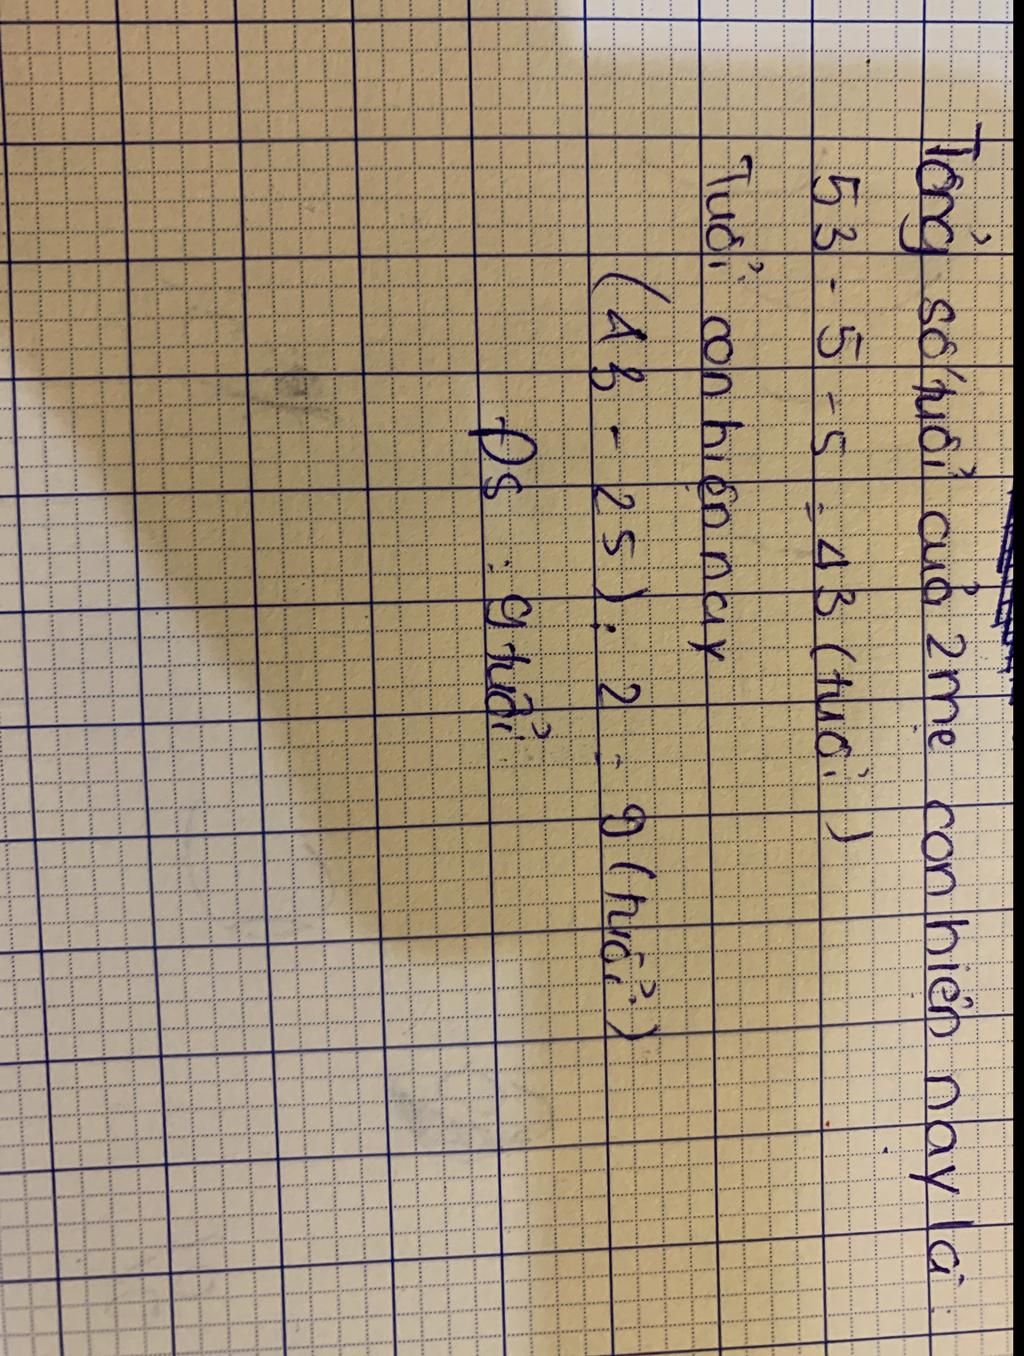 Tổng số tuổi củả 2 mẹ con hiện nay là:
53 - 5 - 5 = 43 (tuổi)
Tuổi con hiện nay
(43 - 25) : 2 = 9 (tuổi)
Đs : 9 tuổi